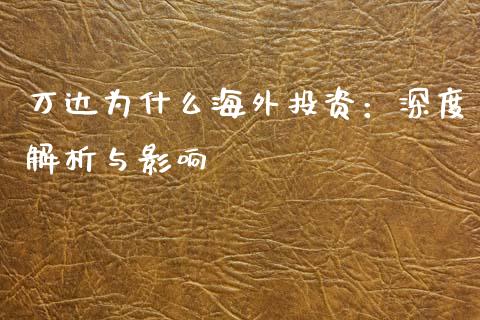 万达为什么海外投资：深度
解析与影响